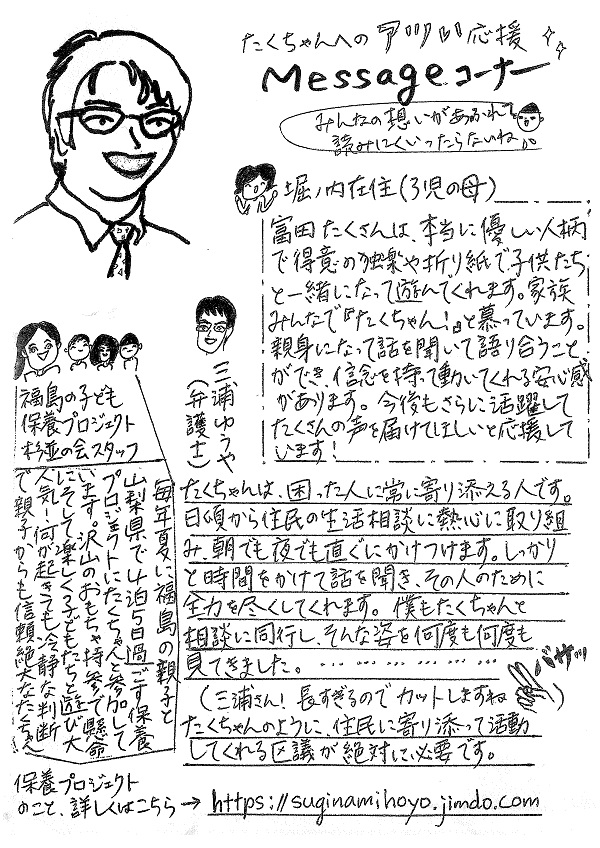 たくちゃんへの アツい 応援
Messageコーナー
みんなの想いがあふれて
読みにくいったらないね。
堀ノ内在住(3児の母)
富田たくさんは、本当に優しい人柄
で得意の独楽や折り紙で、子供たち
と一緒になって遊んでくれます。家族
みんなで『たくちゃん!』と慕っています。
親身になって話を聞いて語り合うこと
ができ、信念を持って動いてくれる安心感
があります。今後もさらに活躍して
たくさんの声を届けてほしいと応援して
います!
三浦ゆうや
(弁護士)
たくちゃんは、困った人に常に寄り添える人です。
日頃から住民の生活相談に熱心に取り組
み、朝でも夜でも直ぐにかけつけます。しっかり
と時間をかけて話を聞き、その人のために
全力を尽くしてくれます。僕もたくちゃんと
相談に同行し、そんな姿を何度も何度も
見てきました。………………
バサッ
(三浦さん!長すぎるのでカットしますね)
たくちゃんのように、住民に寄り添って活動
してくれる区議が絶対に必要です。
福島の子ども
保養プロジェクト
杉並の会スタッフ
毎年夏に福島の親子と
山梨県で4泊5日過ごす保養
プロジェクトにたくちゃんと参加して
います。沢山のおもちゃ持参で懸命
にそして楽しく子どもたちと遊び大
人気!何が起きても冷静な判断
で親子からも信頼絶大なたくちゃん
保養プロジェクト
のこと、詳しくはこちら→ https://suginamihoyo.jimdo.com